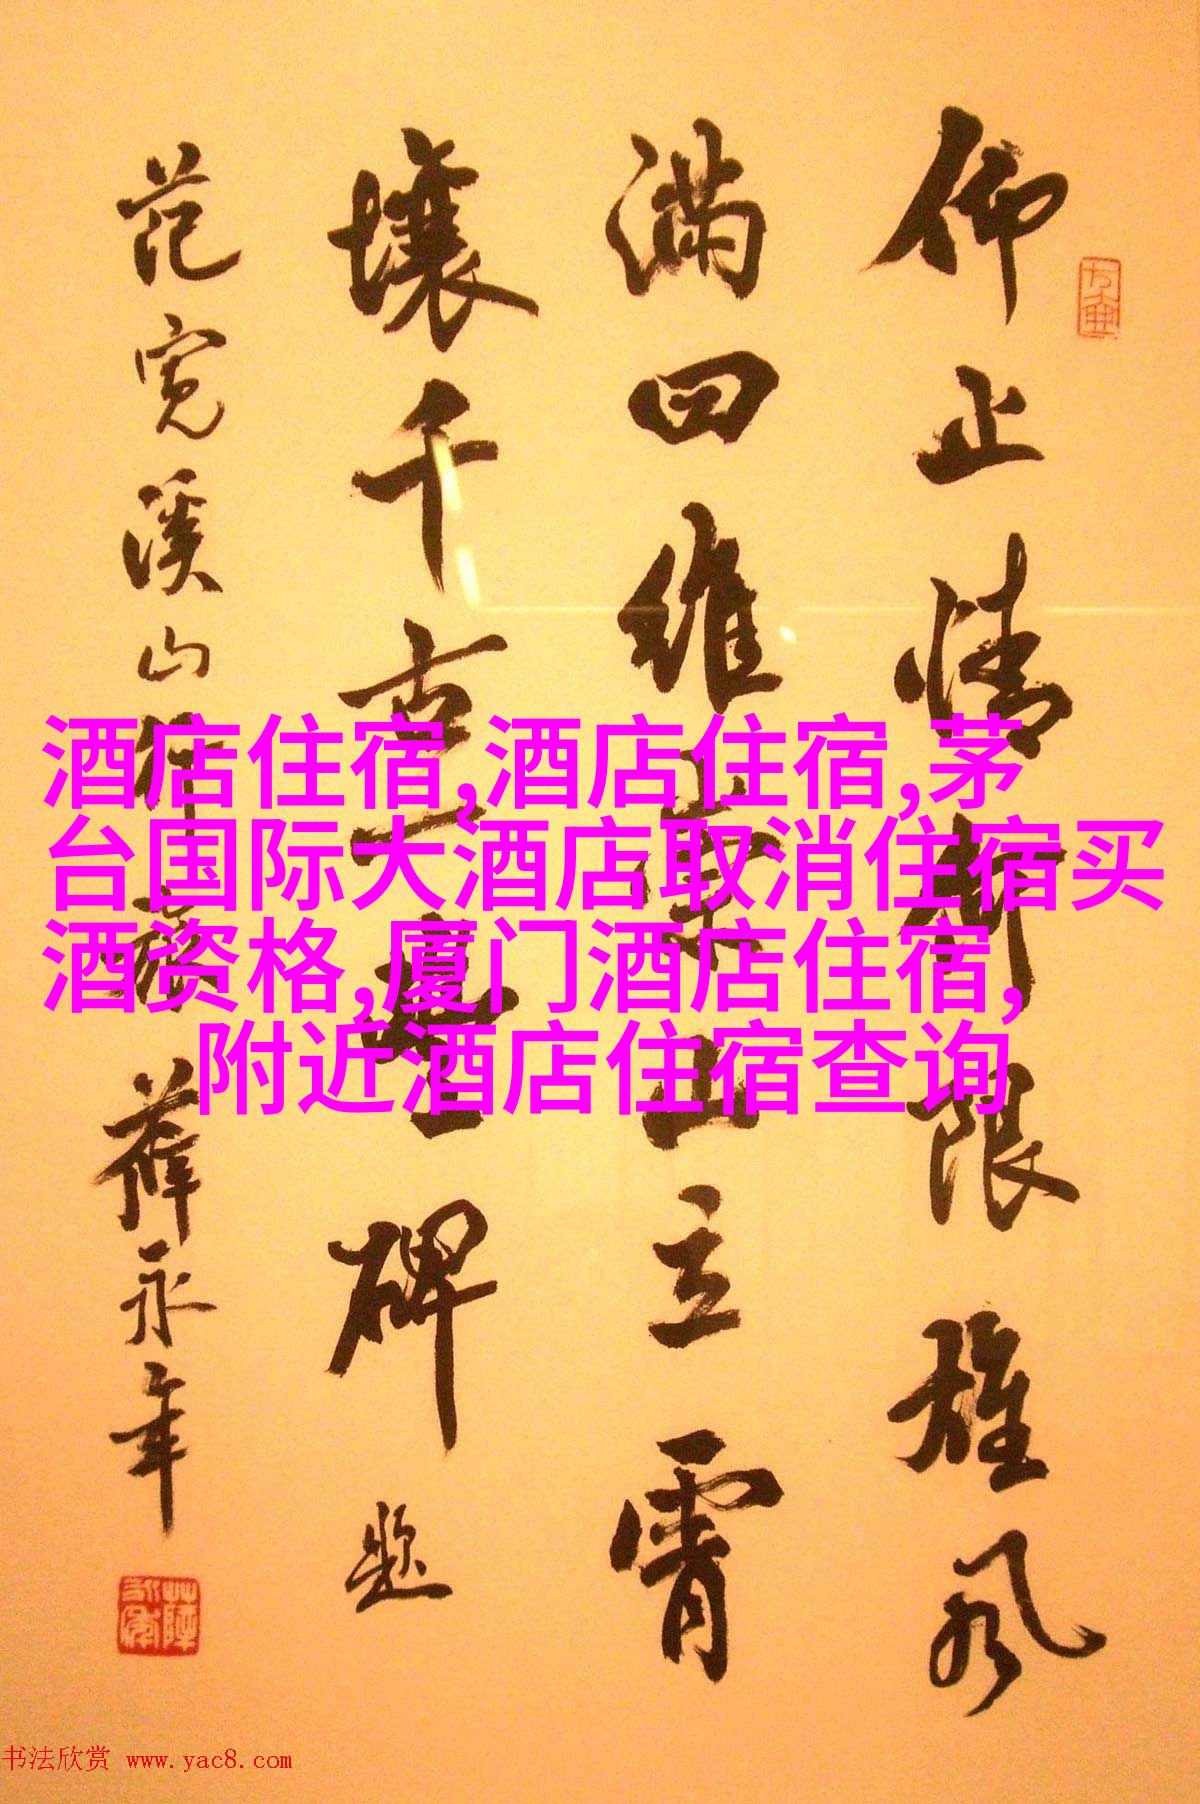 仰止情何限雄风
满四维崇山立霄
壤千古一豐碑题
范宽溪山行旅 薛永年
酒店住宿,酒店住宿,茅
台国际大酒店取消住宿买
酒资格,厦门酒店住宿,
附近酒店住宿查询
书法欣赏 www.yac8.com